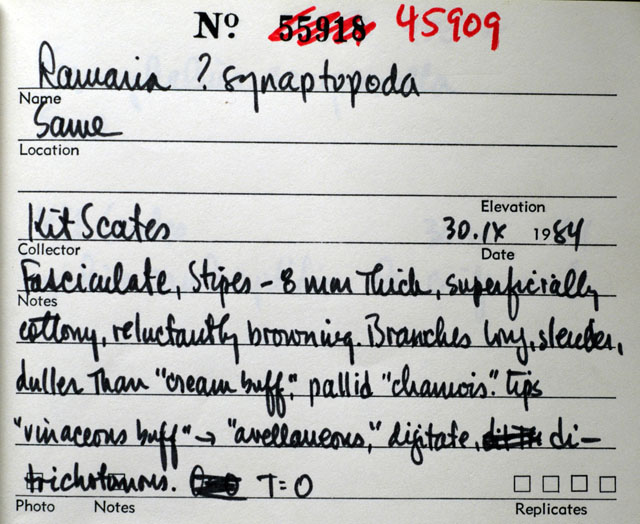 Nº 55918 45909
Ramaria ? synaptopoda
Name
Same
Location
Elevation
Kit Scates 30.IX 1984
Collector Date
Fasciculate, Stipes - 8 mm Thick, superficially
Notes
cottony, reluctantly browning. Branches long, slender,
duller Than "cream buff," pallid "chamois". Tips
"vinaceous buff" → "avellaneous," digitate, di-
trichotomous. T=0
Photo Notes Replicates